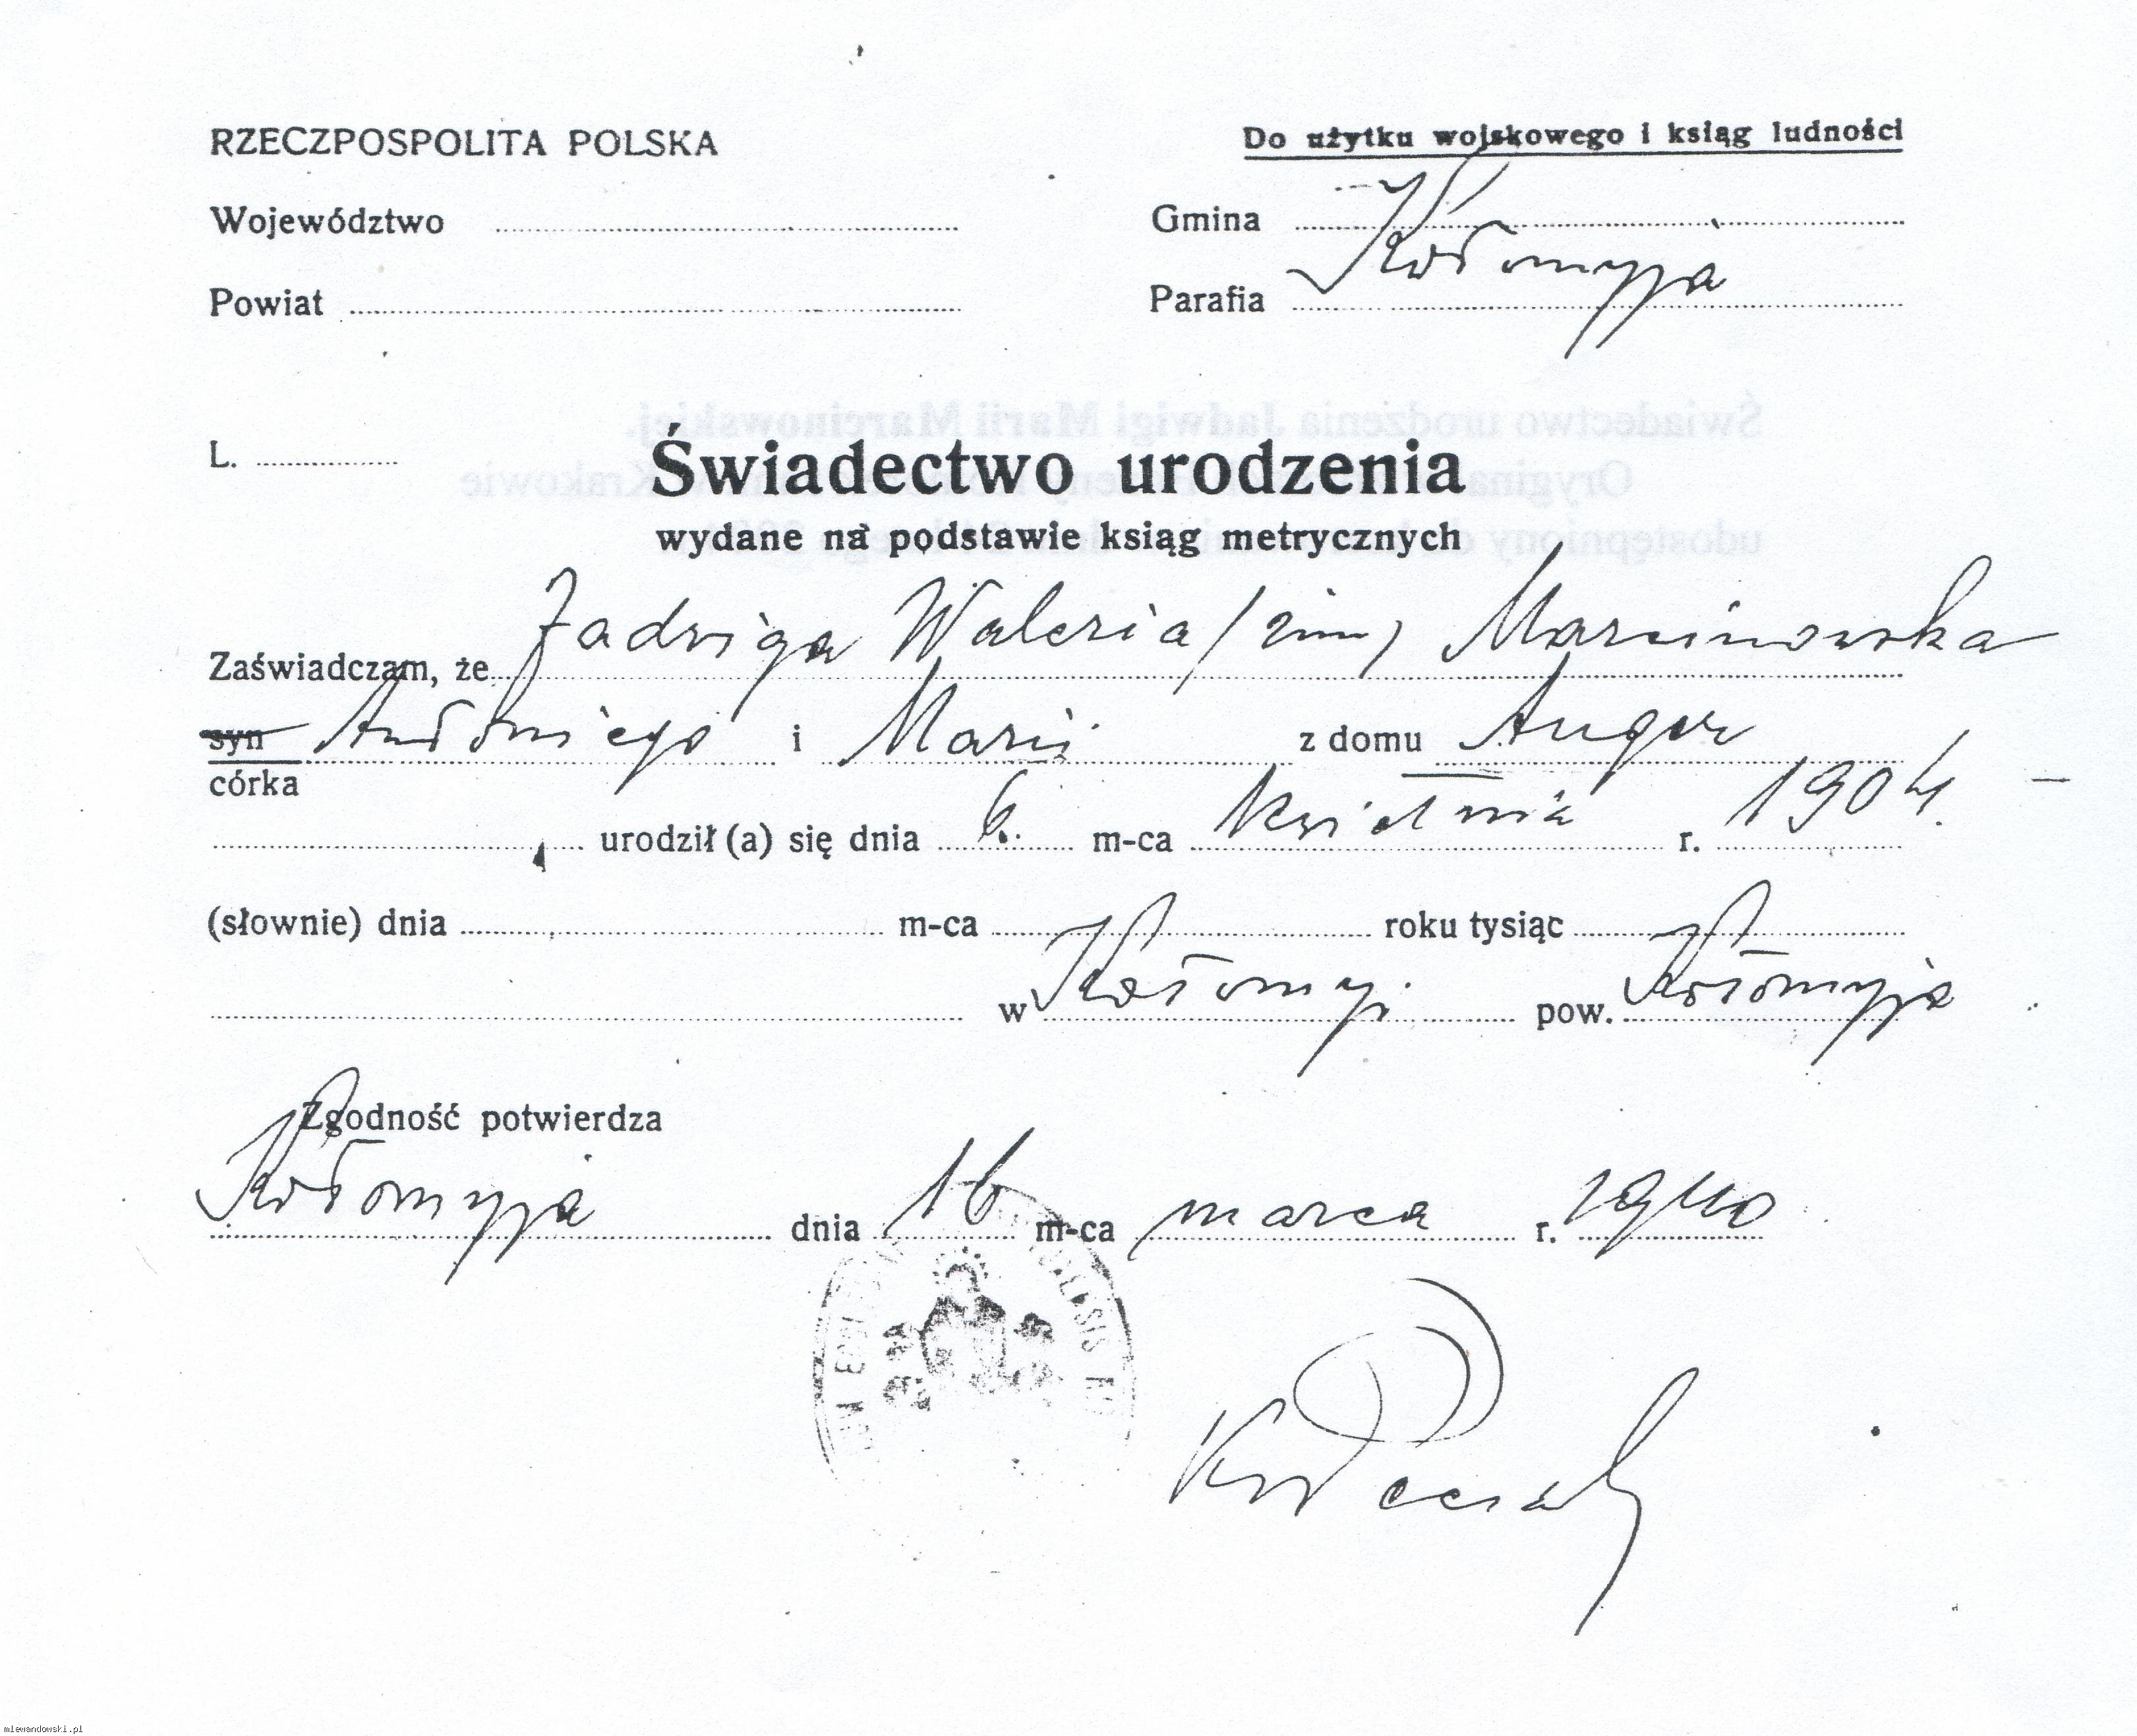 RZECZPOSPOLITA POLSKA
Do użytku wojskowego i ksiąg ludności
Województwo
Gmina
Kołomyja
Powiat
Parafia
L.
Świadectwo urodzenia
wydane na podstawie ksiąg metrycznych
Zaświadczam, że Jadwiga Waleria / 2im, Marcinowska
syn Antoniego i Marii z domu Anger
córka
urodził (a) się dnia 6. m-ca kwietnia r. 1904.
(słownie) dnia m-ca roku tysiąc
w Kołomyi pow. Kołomyja
Zgodność potwierdza
Kołomyja dnia 16 m-ca marca r. 1940
mlewandowski.pl